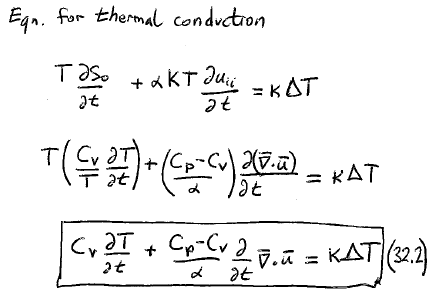 Eqn. for thermal conduction
T ∂S₀/∂t + αKT ∂uᵢᵢ/∂t = κΔT
T(Cᵥ/T ∂T/∂t) + (Cₚ-Cᵥ/α) ∂(∇̄·ū)/∂t = κΔT
Cᵥ ∂T/∂t + Cₚ-Cᵥ/α ∂/∂t ∇̄·ū = κΔT (32.2)